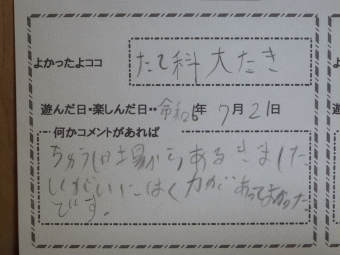 よかったよココ たて科大たき
遊んだ日・楽しんだ日・・令和6年 7月21日
何かコメントがあれば
ちゅう車場からあるきました
いがいにはく力があってよかった
です。